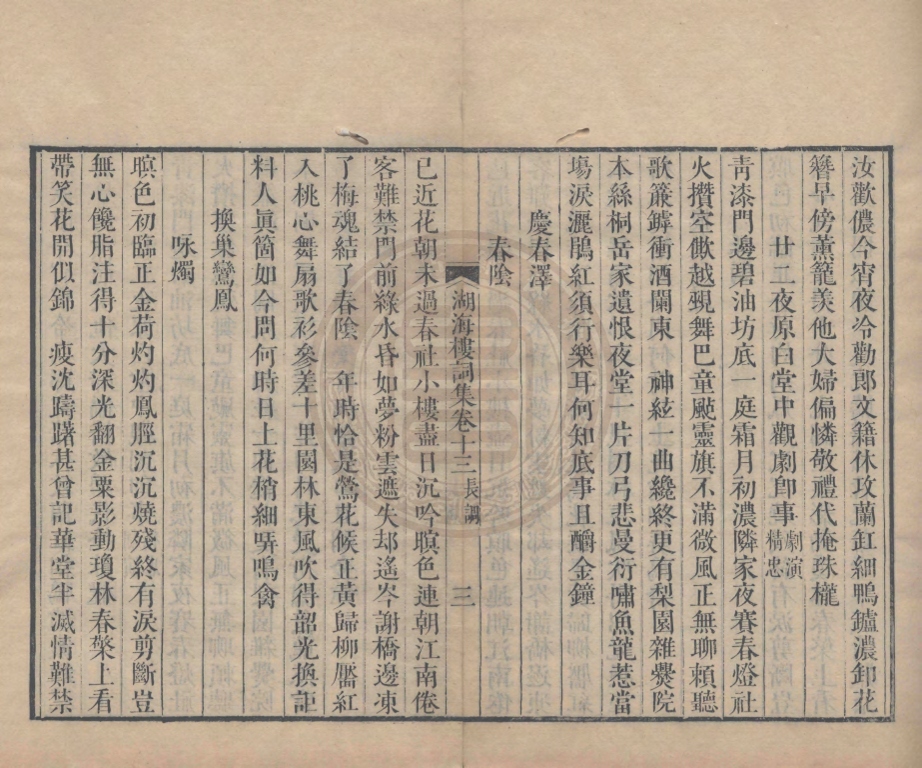 汝歡儂今宵夜冷勸郎文籍休攻蘭缸細鴨鑪濃卸花
簪早傍薰籠羨他大婦偏憐敬禮代掩珠櫳
廿二夜原白堂中觀劇卽事劇演精忠
靑漆門邊碧油坊底一庭霜月初濃隣家夜賽春燈社
火攢空僛越覡舞巴童颭靈旗不滿微風正無聊賴聽
歌簾罅衝酒闌東　神絃一曲纔終更有梨園雜爨院
本絲桐岳家遺恨夜堂一片刀弓悲曼衍嘯魚龍惹當
塲淚灑鵑紅須行樂耳何知底事且酹金鐘
慶春澤
春陰
湖海樓詞集卷十三 長調 三
已近花朝未過春社小樓盡日沉吟暝色連朝江南倦
客難禁門前綠水昏如夢粉雲遮失却遙岑謝橋邊凍
了梅魂結了春陰　年時恰是鶯花候正黃歸柳靨紅
入桃心舞扇歌衫參差十里園林東風吹得韶光換詎
料人眞箇如今問何時日上花梢細哢鳴禽
換巢鸞鳳
咏燭
暝色初臨正金荷灼灼鳳脛沉沉燒殘終有淚剪斷豈
無心饞脂注得十分深光翻金粟影動瓊林春檠上看
帶笑花開似錦　瘦沈躊躇甚曾記華堂半滅情難禁